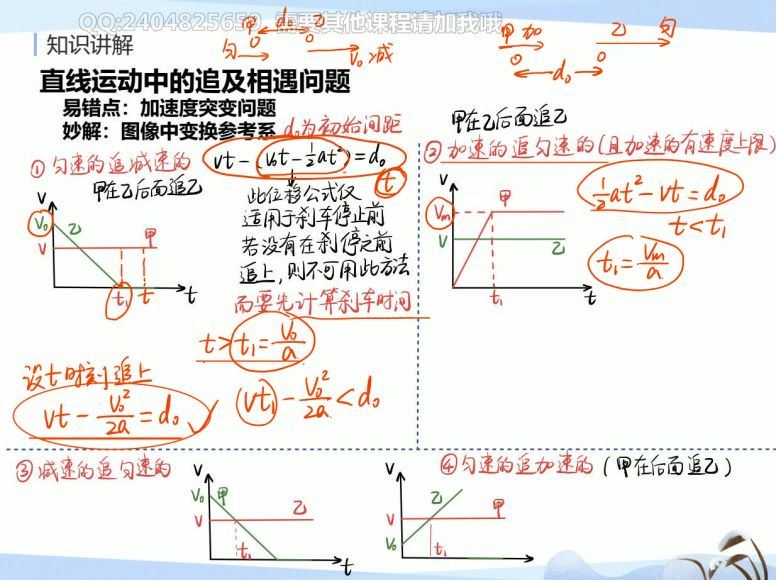 QQ:2404825659 需要其他课程请加我哦
甲 d₀ 乙
匀 0 0 V₀ 减
甲 加 乙 匀
0 d₀ 0
知识讲解
直线运动中的追及相遇问题
易错点：加速度突变问题
妙解：图像中变换参考系
d₀为初始间距
① 匀速的追减速的
甲在乙后面追乙
vt-(v₀t-½at²)=d₀
t
此位移公式仅
适用于刹车停止前
若没有在刹停之前
追上，则不可用此方法
而要先计算刹车时间
t>t₁=V₀/a
V
V₀ 乙
V 甲
t₁ t t
设t时刻追上
vt-V₀²/2a=d₀
vt₁-V₀²/2a<d₀
甲在乙后面追乙
② 加速的追匀速的(且加速的有速度上限)
V
Vm 甲
V 乙
t₁ t
½at²-vt=d₀
t<t₁
t₁=Vm/a
③ 减速的追匀速的
V
V₀ 甲
V 乙
t₁ t
④ 匀速的追加速的（甲在后面追乙）
V
乙
V 甲
V₀
t₁ t